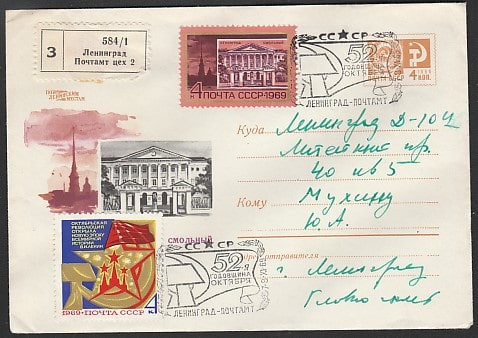 З
584/1
Ленинград
Почтамт цех 2
ЛЕНИНГРАД СМОЛЬНЫЙ
4 ПОЧТА СССР·1969
СС★СР
52
ГОДОВЩИНА
ОКТЯБРЯ
ЛЕНИНГРАД-ПОЧТАМТ
4
КОП.
Куда
Ленинград Д-104
Литейный пр.
40 кв 5
Кому
Мухину
Ю.А.
СМОЛЬНЫЙ
ОКТЯБРЬСКАЯ
РЕВОЛЮЦИЯ
ОТКРЫЛА
НОВУЮ ЭПОХУ
ВСЕМИРНОЙ
ИСТОРИИ
В.И.ЛЕНИН
1969·ПОЧТА СССР
СС СР
52-я
ГОДОВЩИНА
ОКТЯБРЯ
ЛЕНИНГРАД-ПОЧТАМТ
отправителя
г. Ленинград